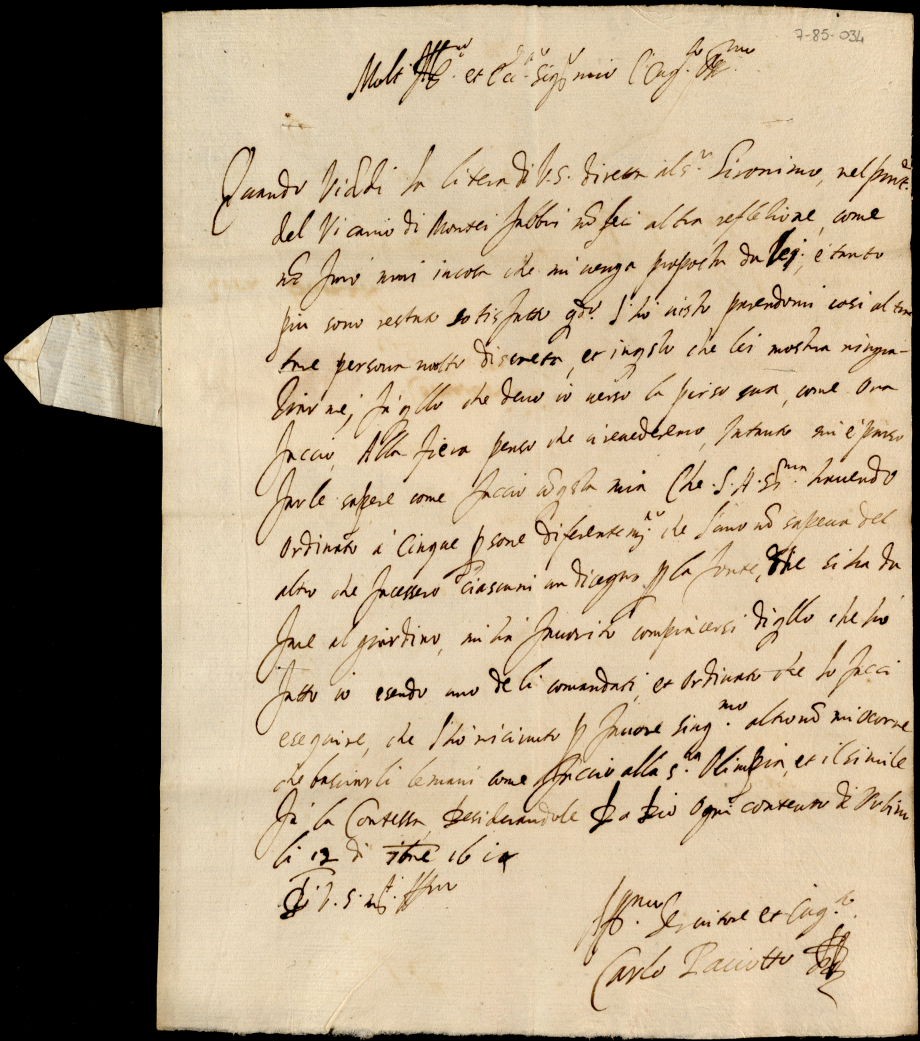 7-85-034
Molt Ill.re et Ecc.te Sig.r mio Cug.o
Quando Viddi la litera di V.S. diretta al S.r Gironimo, nel
del Vicario di Montei fabbri nō feci altra reflesione, come
nō farò mai in cosa che mi venga proposta da lej, è tanto
piu sono restato sotisfatto q̄do l'hò visto parendomi cosi al
trare persona molto discreta, et in q̄sto che lei mostra ringra-
tiarme, fa q̄llo che devo io verso la persona sua, come ora
faccio, Alla fiera penso che ci revederemo, Intanto mi è parso
farle sapere come faccio cō q̄sta mia Che S. A. Ser.ma havendo
Ordinato à Cinque p̱sone diferentem.te che l'uno nō sapeva del
altro che facessero ciascuni un disegno p̱ la fonte, che si ha da
fare al giardino, mi hà favorito compiacersi di q̄llo che hò
fatto io esendo uno de li comandati, et Ordinato che lo facci
eseguire, che l'hò riceuuto p̱ favore sing.mo altro nō mi ocorre
che basciarli le mani come faccio alla S.ra Olimpia, et il simile
fà la Contessa, desiderandole da Dio Ogni contento di Urbino
li 12 di 16
Di V. S. m.to Ill.re
Aff.mo Servitore et Cug.o
Carlo Paciotto